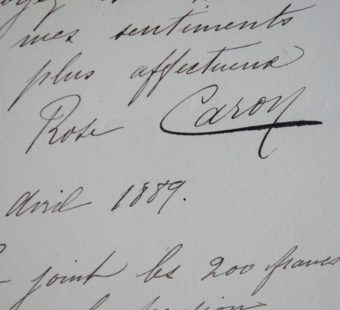 mes sentiments
plus affectueux
Rose Caron
avril 1889.
joint les 200 francs